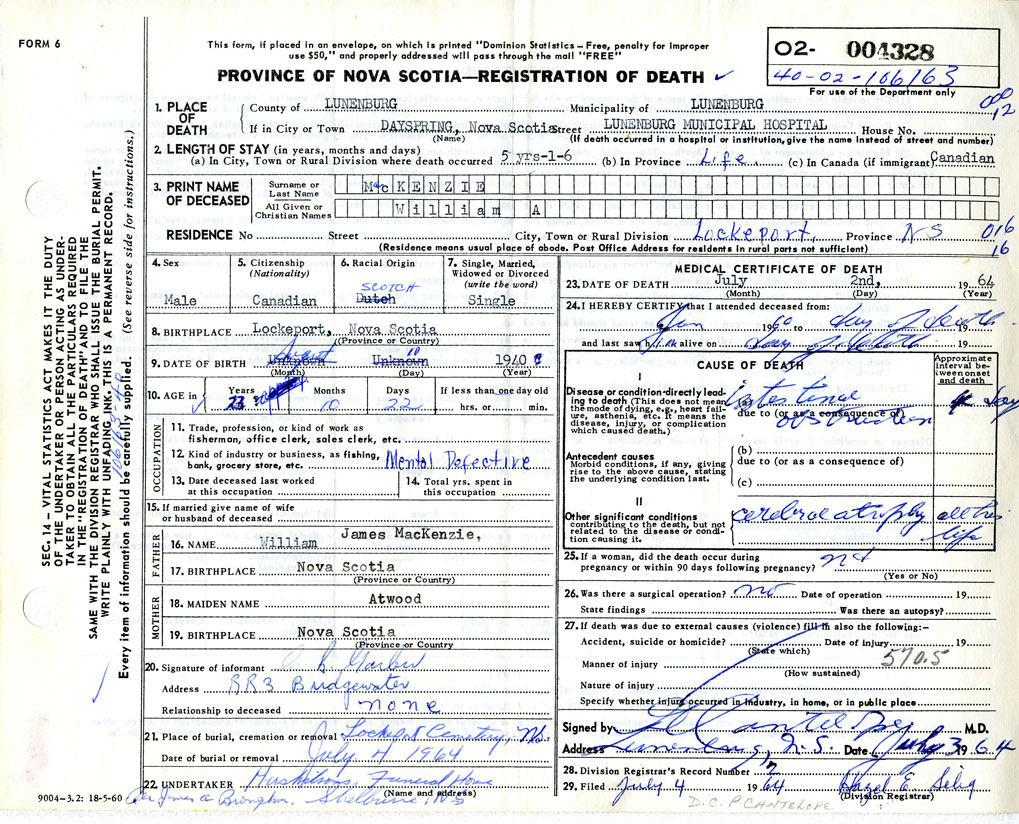 FORM 6
This form, if placed in an envelope, on which is printed "Dominion Statistics—Free, penalty for improper
use $50," and properly addressed will pass through the mail "FREE"
PROVINCE OF NOVA SCOTIA—REGISTRATION OF DEATH ✓
O2- 004328
40-02-106163
For use of the Department only
000
12
SEC. 14—VITAL STATISTICS ACT MAKES IT THE DUTY
OF THE UNDERTAKER OR PERSON ACTING AS UNDER-
TAKER TO OBTAIN ALL THE PARTICULARS REQUIRED
IN THE "REGISTRATION OF DEATH" AND TO FILE THE
SAME WITH THE DIVISION REGISTRAR WHO SHALL ISSUE THE BURIAL PERMIT.
WRITE PLAINLY WITH UNFADING INK. THIS IS A PERMANENT RECORD.
Every item of information should be carefully supplied. (See reverse side for instructions.)
1. PLACE OF DEATH
County of LUNENBURG Municipality of LUNENBURG
If in City or Town DAYSPRING, Nova Scotia Street LUNENBURG MUNICIPAL HOSPITAL House No.
(Name) (If death occurred in a hospital or institution, give the name instead of street and number)
2. LENGTH OF STAY (in years, months and days)
(a) In City, Town or Rural Division where death occurred 5 yrs-1-6 (b) In Province Life. (c) In Canada (if immigrant) Canadian
3. PRINT NAME OF DECEASED
Surname or Last Name MacKENZIE
All Given or Christian Names William A
RESIDENCE No Street City, Town or Rural Division Lockeport, Province NS
016
16
(Residence means usual place of abode. Post Office Address for residents in rural parts not sufficient)
4. Sex
Male
5. Citizenship (Nationality)
Canadian
6. Racial Origin
SCOTCH
Dutch
7. Single, Married, Widowed or Divorced (write the word)
Single
8. BIRTHPLACE Lockeport, Nova Scotia
(Province or Country)
9. DATE OF BIRTH August Unknown Unknown 10 1940
(Month) (Day) (Year)
10. AGE in Years 23 Months 10 Days 22 If less than one day old hrs. or min.
OCCUPATION
11. Trade, profession, or kind of work as
fisherman, office clerk, sales clerk, etc.
12. Kind of industry or business, as fishing,
bank, grocery store, etc. Mental Defective
13. Date deceased last worked
at this occupation
14. Total yrs. spent in
this occupation
15. If married give name of wife
or husband of deceased
FATHER
16. NAME William James MacKenzie,
17. BIRTHPLACE Nova Scotia
(Province or Country)
MOTHER
18. MAIDEN NAME Atwood
19. BIRTHPLACE Nova Scotia
(Province or Country
20. Signature of informant
Address RR3 Bridgewater
Relationship to deceased none
21. Place of burial, cremation or removal Lockeport Cemetery, NS.
Date of burial or removal July 4 1964
22. UNDERTAKER Huskilson Funeral Home
(Name and address)
9004-3.2: 18-5-60 Shelburne, NS
MEDICAL CERTIFICATE OF DEATH
23. DATE OF DEATH July 2nd, 19 64
(Month) (Day) (Year)
24. I HEREBY CERTIFY that I attended deceased from:
Jan 1960 to day of death 19
and last saw him alive on day of death 19
CAUSE OF DEATH
Approximate interval between onset and death
I
Disease or condition directly lead-
ing to death (This does not mean
the mode of dying, e.g., heart fail-
ure, asthenia, etc. It means the
disease, injury, or complication
which caused death.)
(a) intestinal
due to (or as a consequence of)
obstruction
day
Antecedent causes
Morbid conditions, if any, giving
rise to the above cause, stating
the underlying condition last.
(b)
due to (or as a consequence of)
(c)
II
Other significant conditions
contributing to the death, but not
related to the disease or condi-
tion causing it.
cerebral atrophy all his
life
25. If a woman, did the death occur during
pregnancy or within 90 days following pregnancy?
(Yes or No)
26. Was there a surgical operation? no Date of operation 19
State findings Was there an autopsy?
27. If death was due to external causes (violence) fill in also the following:—
Accident, suicide or homicide? Date of injury 19
(State which)
570.5
Manner of injury
(How sustained)
Nature of injury
Specify whether injury occurred in industry, in home, or in public place
Signed by M.D.
Address Lunenburg, N.S. Date July 3 1964
28. Division Registrar's Record Number 7
29. Filed July 4 1964 Hazel E. Selig
(Division Registrar)
D.C.P CANTELOPE